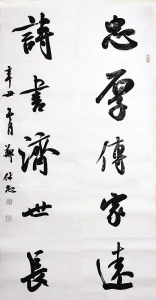 忠厚傳家遠
詩書濟世長
辛丑